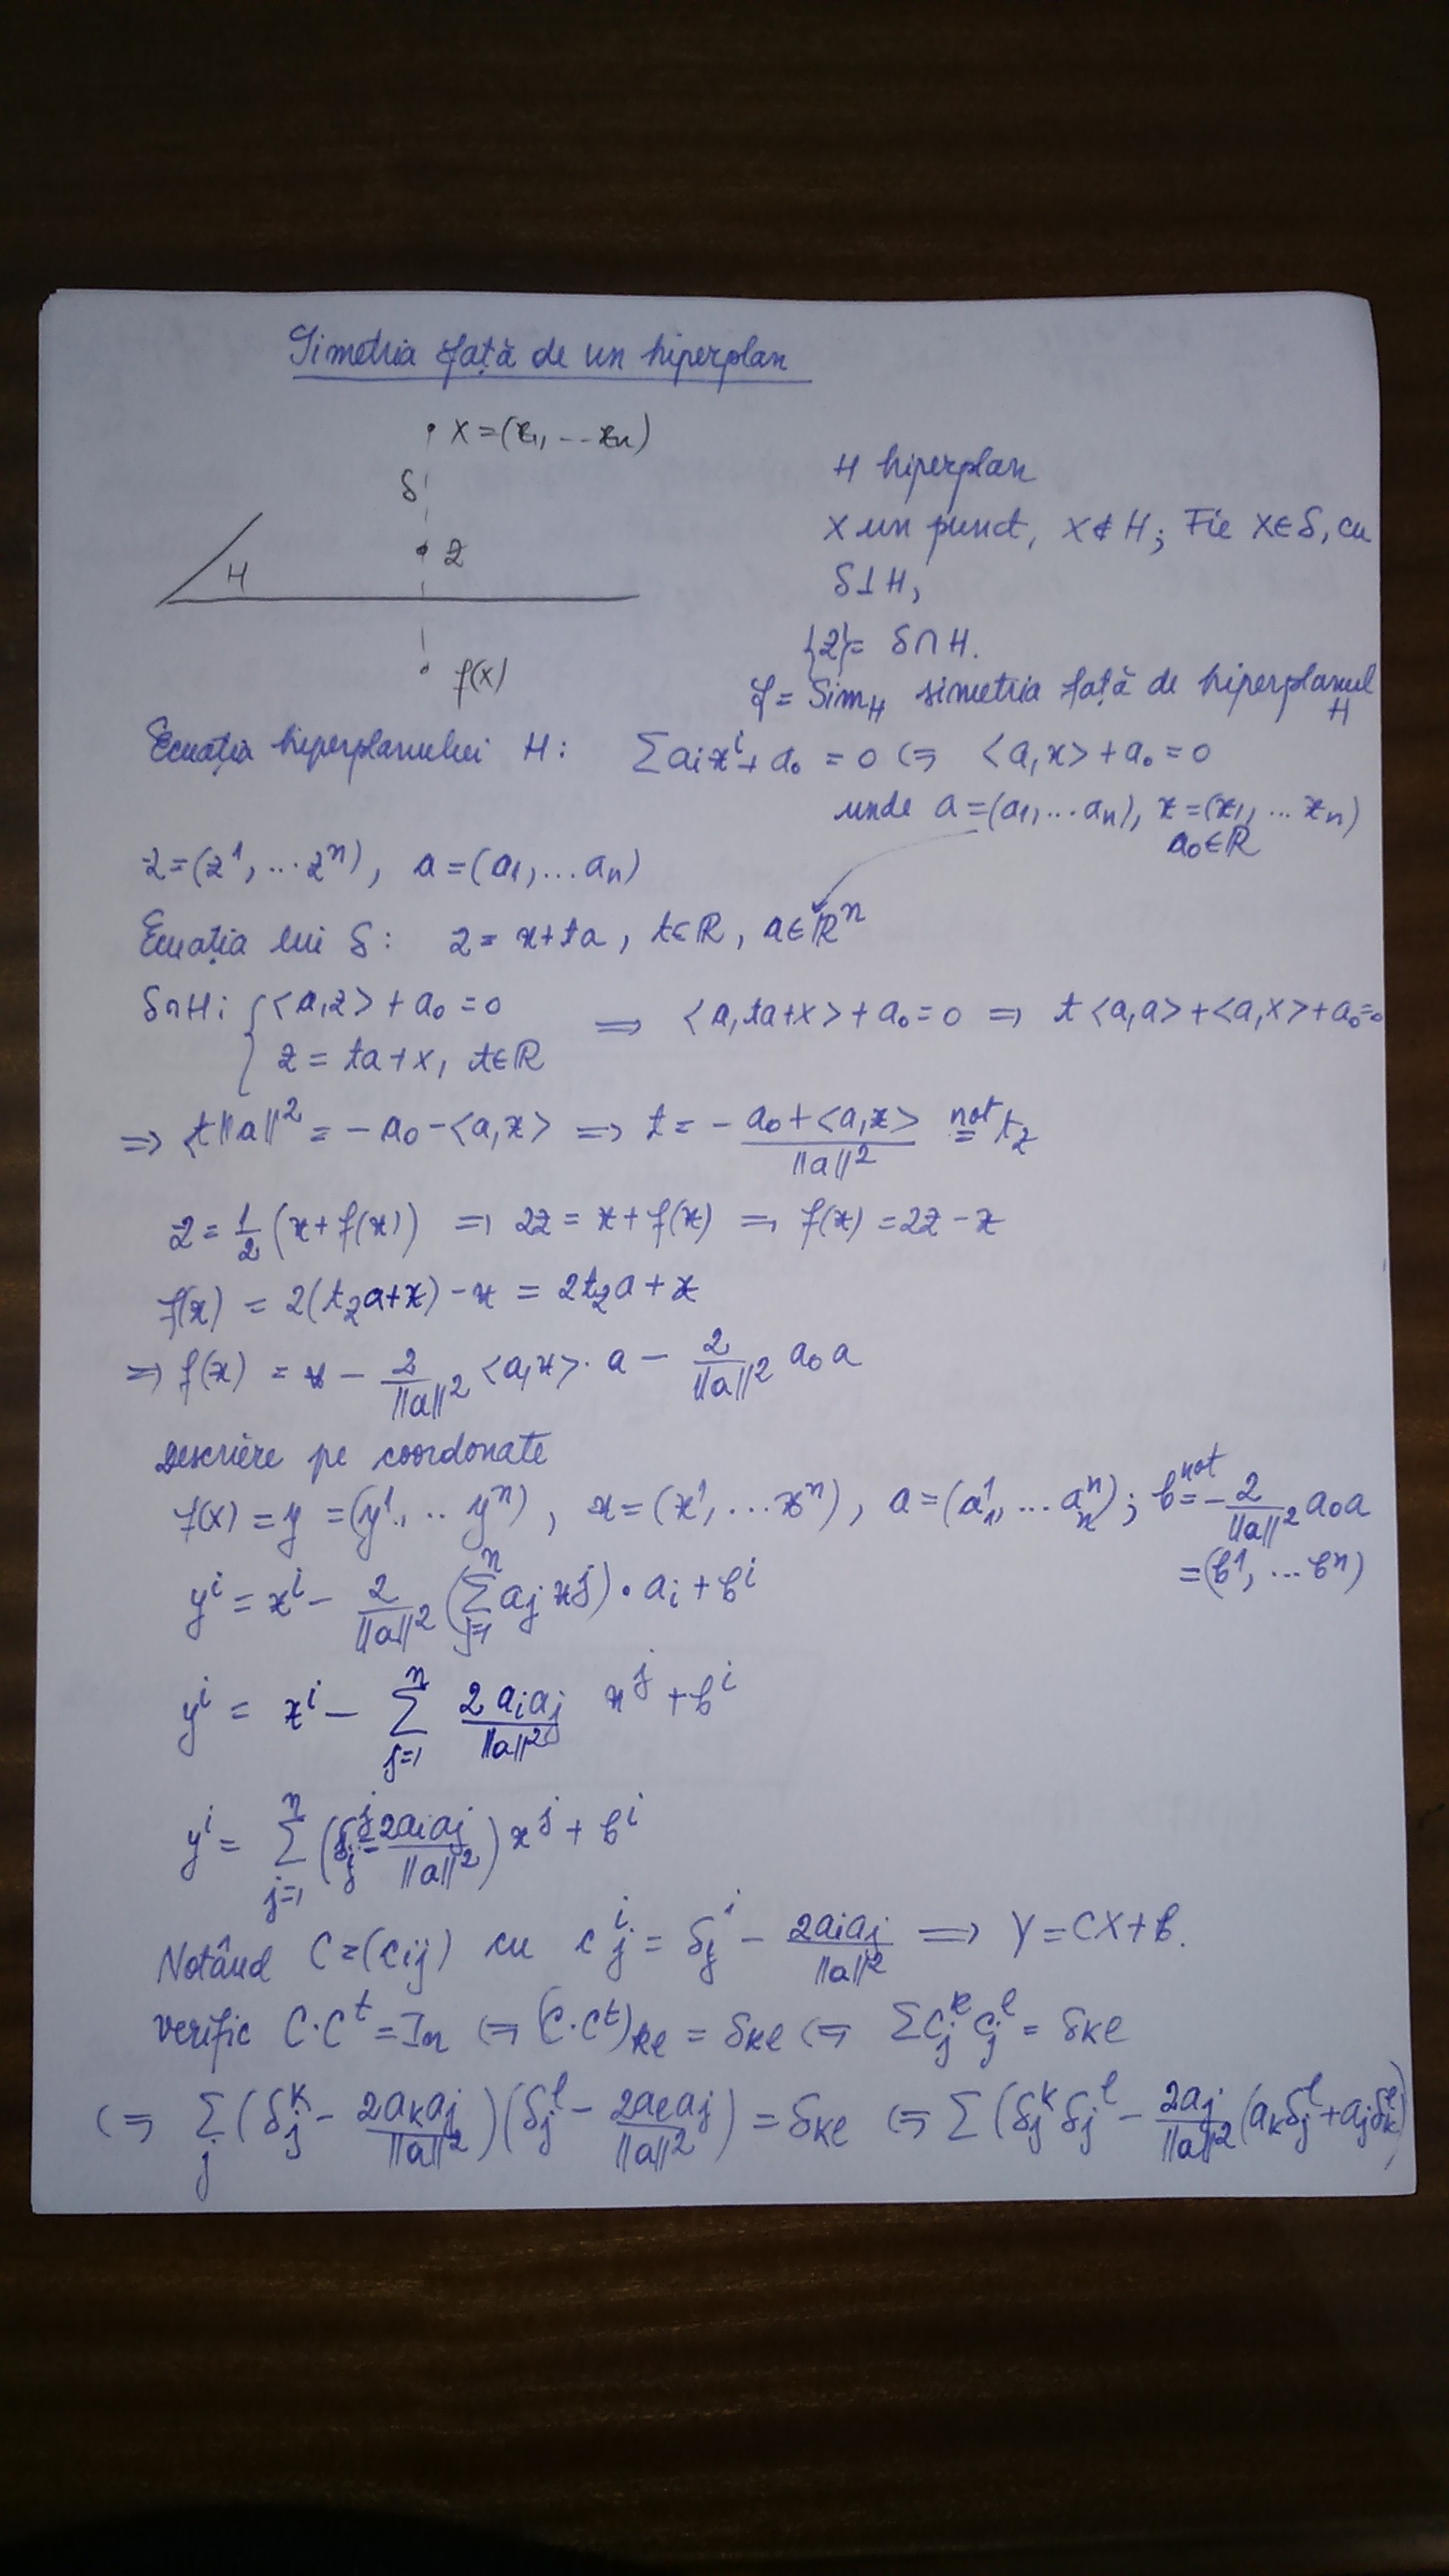 Simetria față de un hiperplan
X=(x₁, ... xₙ)
δ
z
H
f(x)
H hiperplan
X un punct, X∉H; Fie X∈δ, cu
δ⊥H,
{z}= δ∩H.
f = Sim_H simetria față de hiperplanul
H
Ecuația hiperplanului H: Σaᵢxⁱ + a₀ = 0 ⇔ <a,x> + a₀ = 0
unde a=(a₁,...aₙ), x=(x₁,...xₙ)
a₀∈ℝ
z=(z¹,...zⁿ), a=(a₁,...aₙ)
Ecuația lui δ: z = x+ta, t∈ℝ, a∈ℝⁿ
δ∩H: { <a,z> + a₀ = 0 ⇒ <a,ta+x> + a₀ = 0 ⇒ t<a,a>+<a,x>+a₀=0
z = ta+x, t∈ℝ
⇒ t||a||² = -a₀-<a,x> ⇒ t = - (a₀+<a,x>)/||a||² not= t_z
z = 1/2 (x+f(x)) ⇒ 2z = x+f(x) ⇒ f(x) = 2z-x
f(x) = 2(t_z a+x)-x = 2t_z a+x
⇒ f(x) = x - 2/||a||² <a,x>·a - 2/||a||² a₀a
Descriere pe coordonate
f(x) = y = (y¹,..yⁿ), x=(x¹,...xⁿ), a=(a¹₁,...aⁿₙ); b not= - 2/||a||² a₀a
=(b¹,...bⁿ)
yⁱ = xⁱ - 2/||a||² (Σⁿⱼ₌₁ aⱼxʲ)·aᵢ+bⁱ
yⁱ = xⁱ - Σⁿⱼ₌₁ 2aᵢaⱼ/||a||² xʲ+bⁱ
yⁱ = Σⁿⱼ₌₁ (δʲⱼ - 2aᵢaⱼ/||a||²) xʲ+bⁱ
Notând C=(cij) cu cⁱⱼ = δⁱⱼ - 2aᵢaⱼ/||a||² ⇒ Y=CX+b.
verific C·Cᵗ=Iₙ ⇔ (C·Cᵗ)ₖₗ = δₖₗ ⇔ Σcᵏⱼcˡⱼ = δₖₗ
⇔ Σⱼ (δᵏⱼ - 2aₖaⱼ/||a||²)(δˡⱼ - 2aₗaⱼ/||a||²) = δₖₗ ⇔ Σ(δᵏⱼδˡⱼ - 2aⱼ/||a||² (aₖδˡⱼ+aⱼδˡₖ)